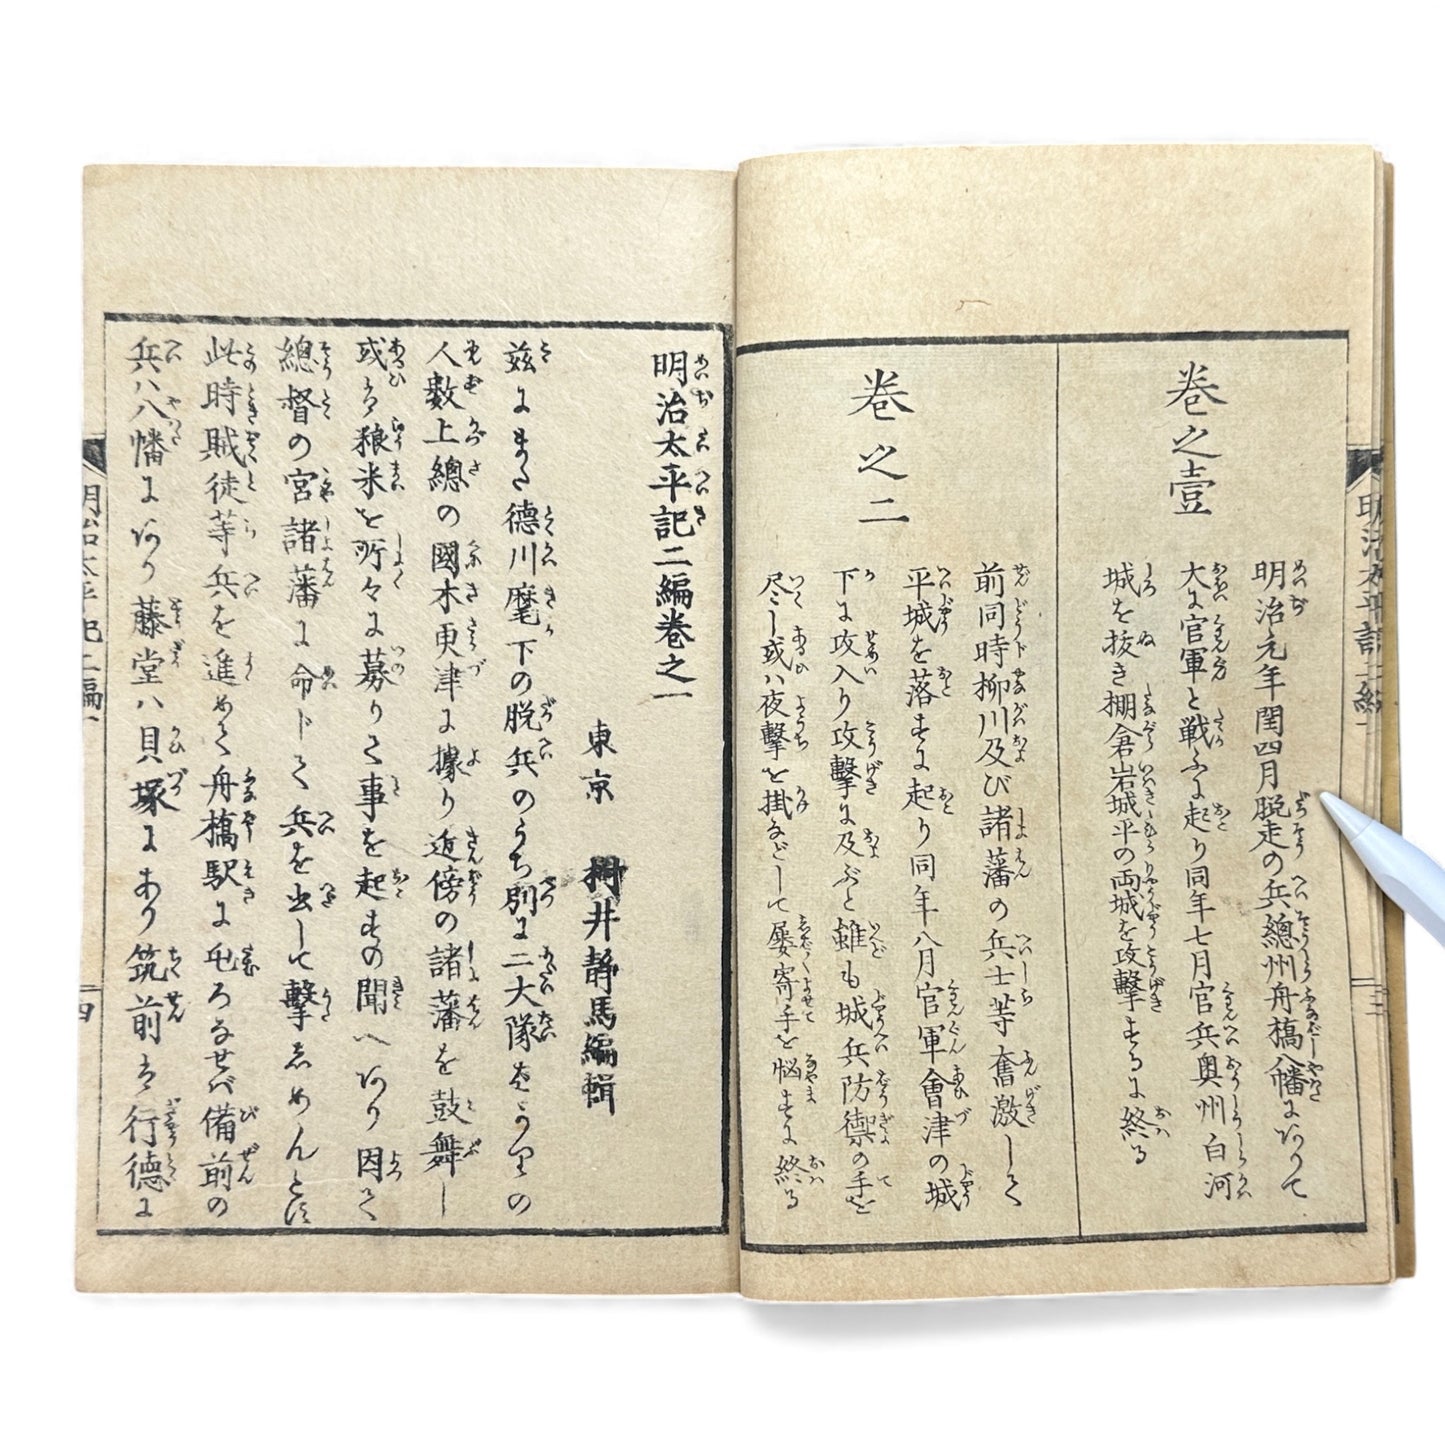 巻之壹
明治元年閏四月脱走の兵總州舟橋八幡にありて
大に官軍と戦ふに起り同年七月官兵奥州白河
城を抜き棚倉岩城平の両城を攻撃するに終る
巻之二
前同時柳川及び諸藩の兵士等奮激して
平城を落すに起り同年八月官軍會津の城
下に攻入り攻撃に及ぶと雖も城兵防禦の手を
尽し或ハ夜撃を掛などして屡寄手を悩すに終る
明治太平記二編巻之一
東京
井静馬編輯
茲にまた徳川麾下の脱兵のうち別に二大隊ばかりの
人数上總の國木更津に據り近傍の諸藩を鼓舞し
或は粮米を所々に募りて事を起すの聞へあり因て
總督の宮諸藩に命じて兵を出して撃しめんとす
此時賊徒等兵を進めて舟橋駅に屯ろなせば備前の
兵八八幡にあり藤堂ハ貝塚にあり筑前は行徳に
明治太平記二編一
四
明治太平記二編一